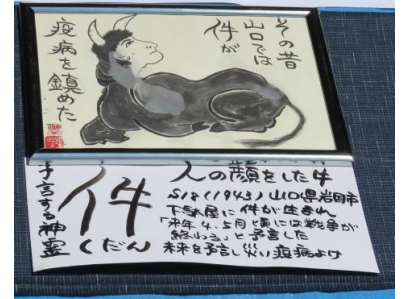 その昔
山口では
件が
疫病を鎮めた
予言する神霊
件
くだん
人の顔をした牛
S18(1943)山口県岩国市
下駄屋に件が生まれ
「来年4.5月頃には戦争が
終わる」と予言した
未来を予言し災い疫病よけ